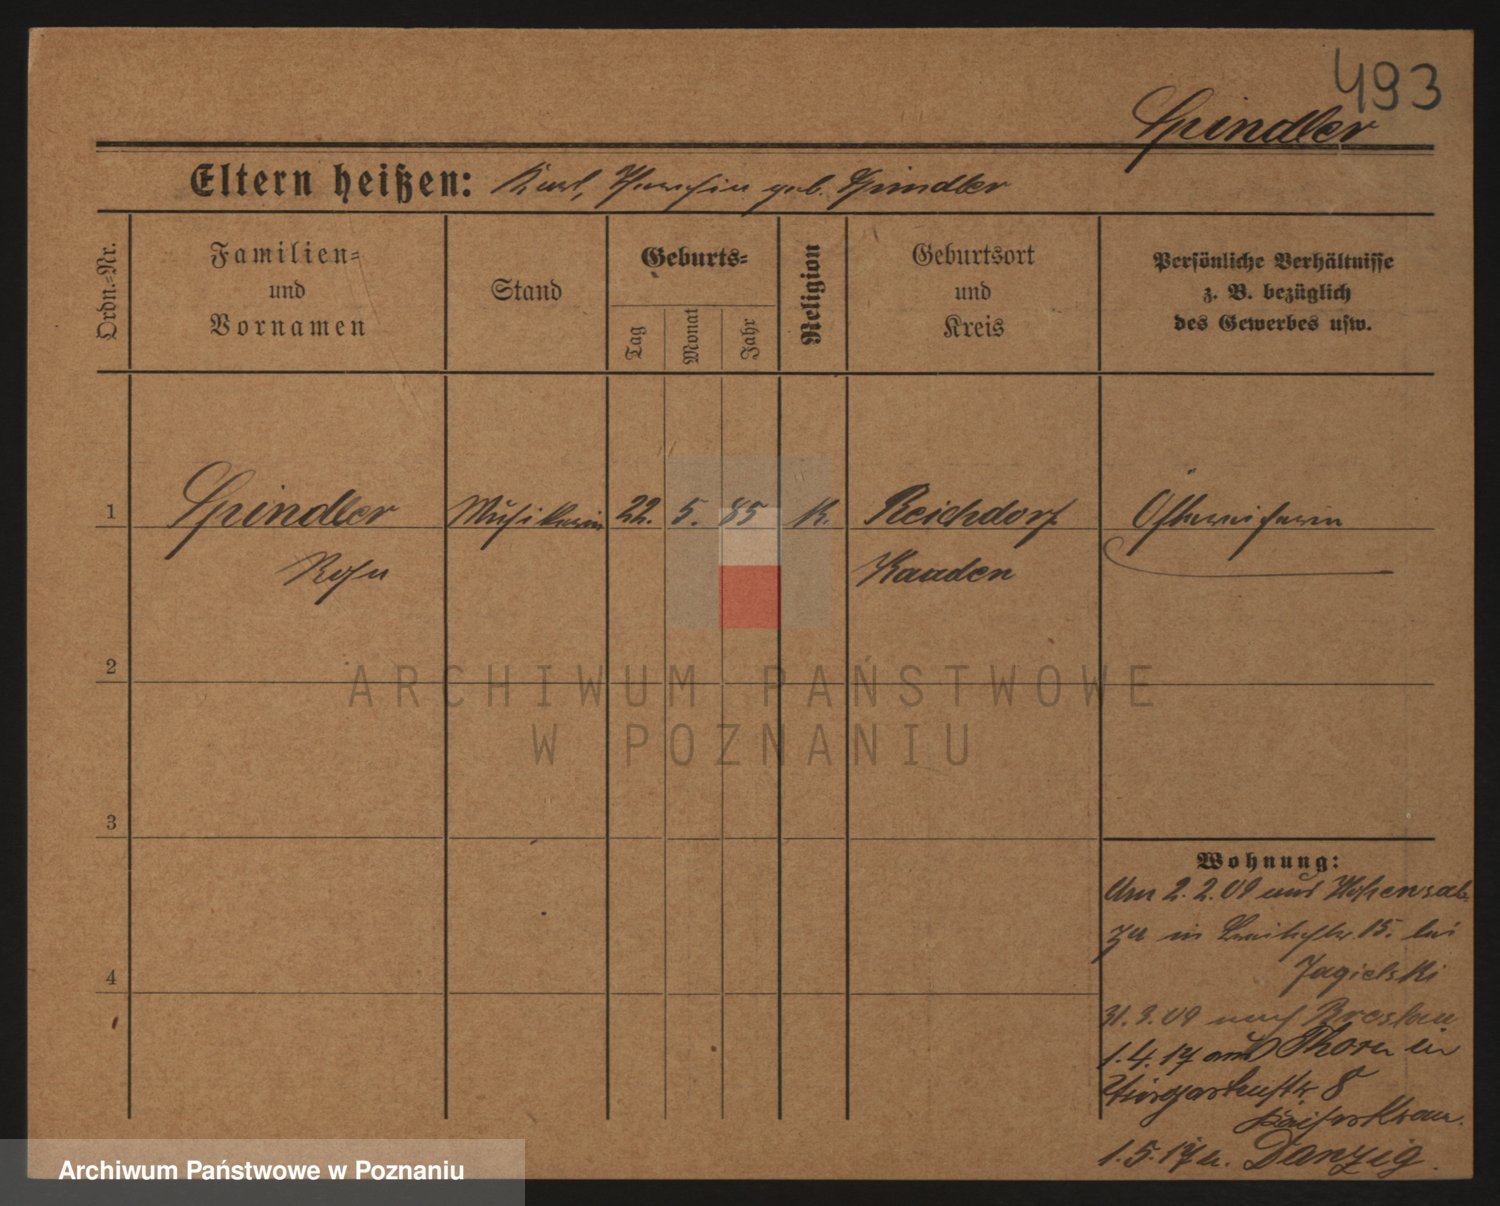 493
Spindler
Eltern heißen: Karl, geb. Spindler
Ordn.-Nr.
Familien-
und
Vornamen
Stand
Geburts-
Tag
Monat
Jahr
Religion
Geburtsort
und
Kreis
Persönliche Verhältnisse
z. B. bezüglich
des Gewerbes usw.
1 Spindler Musikerin 22. 5. 85 K. Reichdorf Österreicherin
Rosa Kaaden
2
3
4
Wohnung:
Am 2.2.09 aus Hohensal
za in Breitestr. 15. bei
Jagielski
31.3.09 nach Breslau
1.4.17 aus Thorn in
Tiergartenstr 8
Kaiserkrone.
1.5.17 n. Danzig.
ARCHIWUM PAŃSTWOWE
W POZNANIU
Archiwum Państwowe w Poznaniu